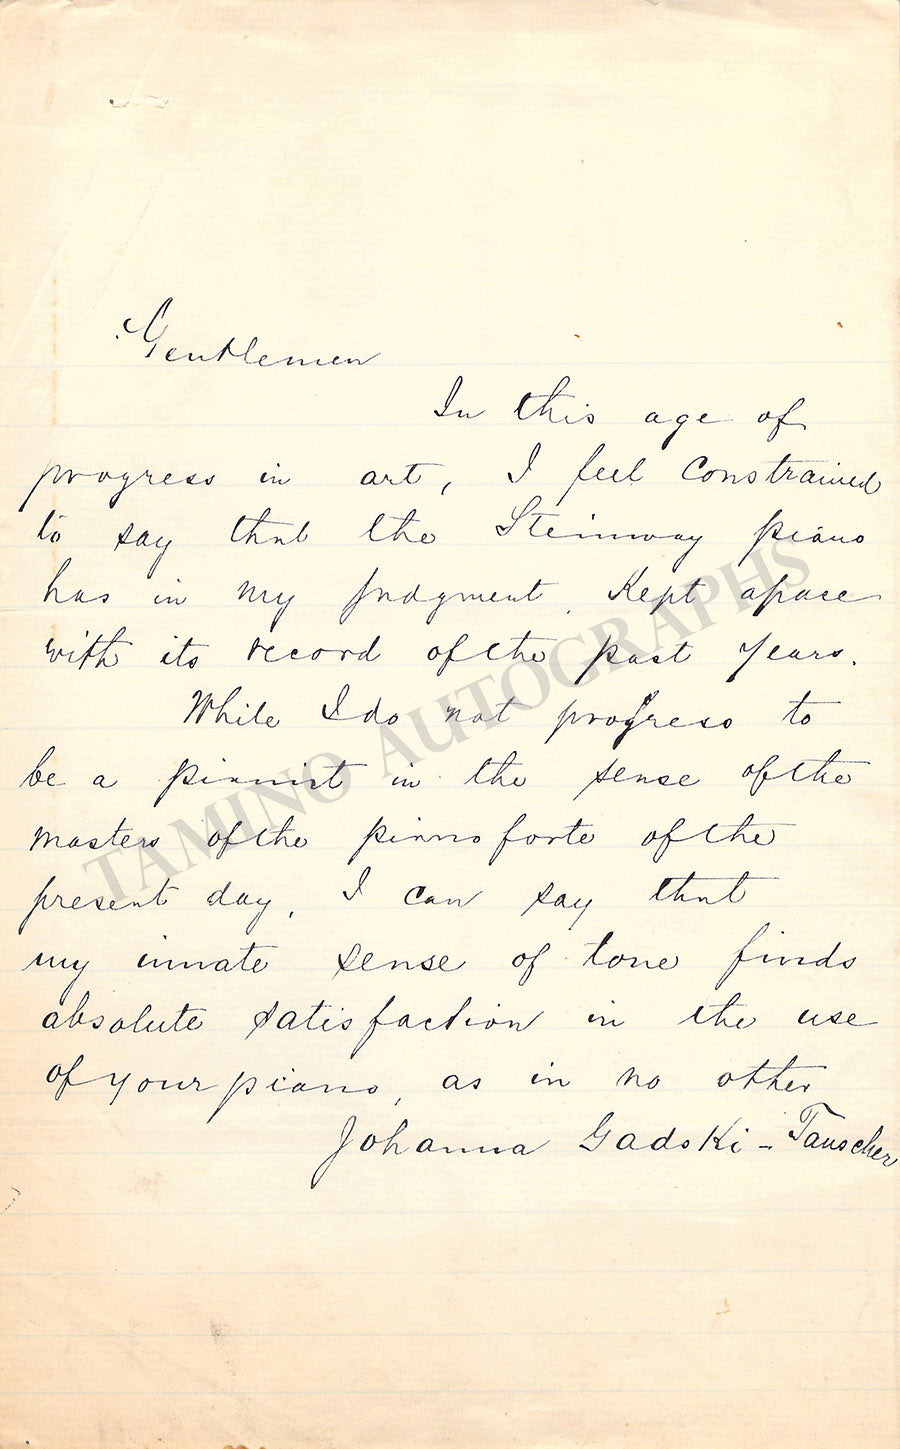 Gentlemen
In this age of
progress in art, I feel constrained
to say that the Steinway piano
has in my judgment. Kept apace
with its record of the past years.
While I do not progress to
be a pianist in the sense of the
masters of the pianoforte of the
present day, I can say that
my innate sense of tone finds
absolute satisfaction in the use
of your piano, as in no other
Johanna Gadski-Tauscher
TAMINO AUTOGRAPHS